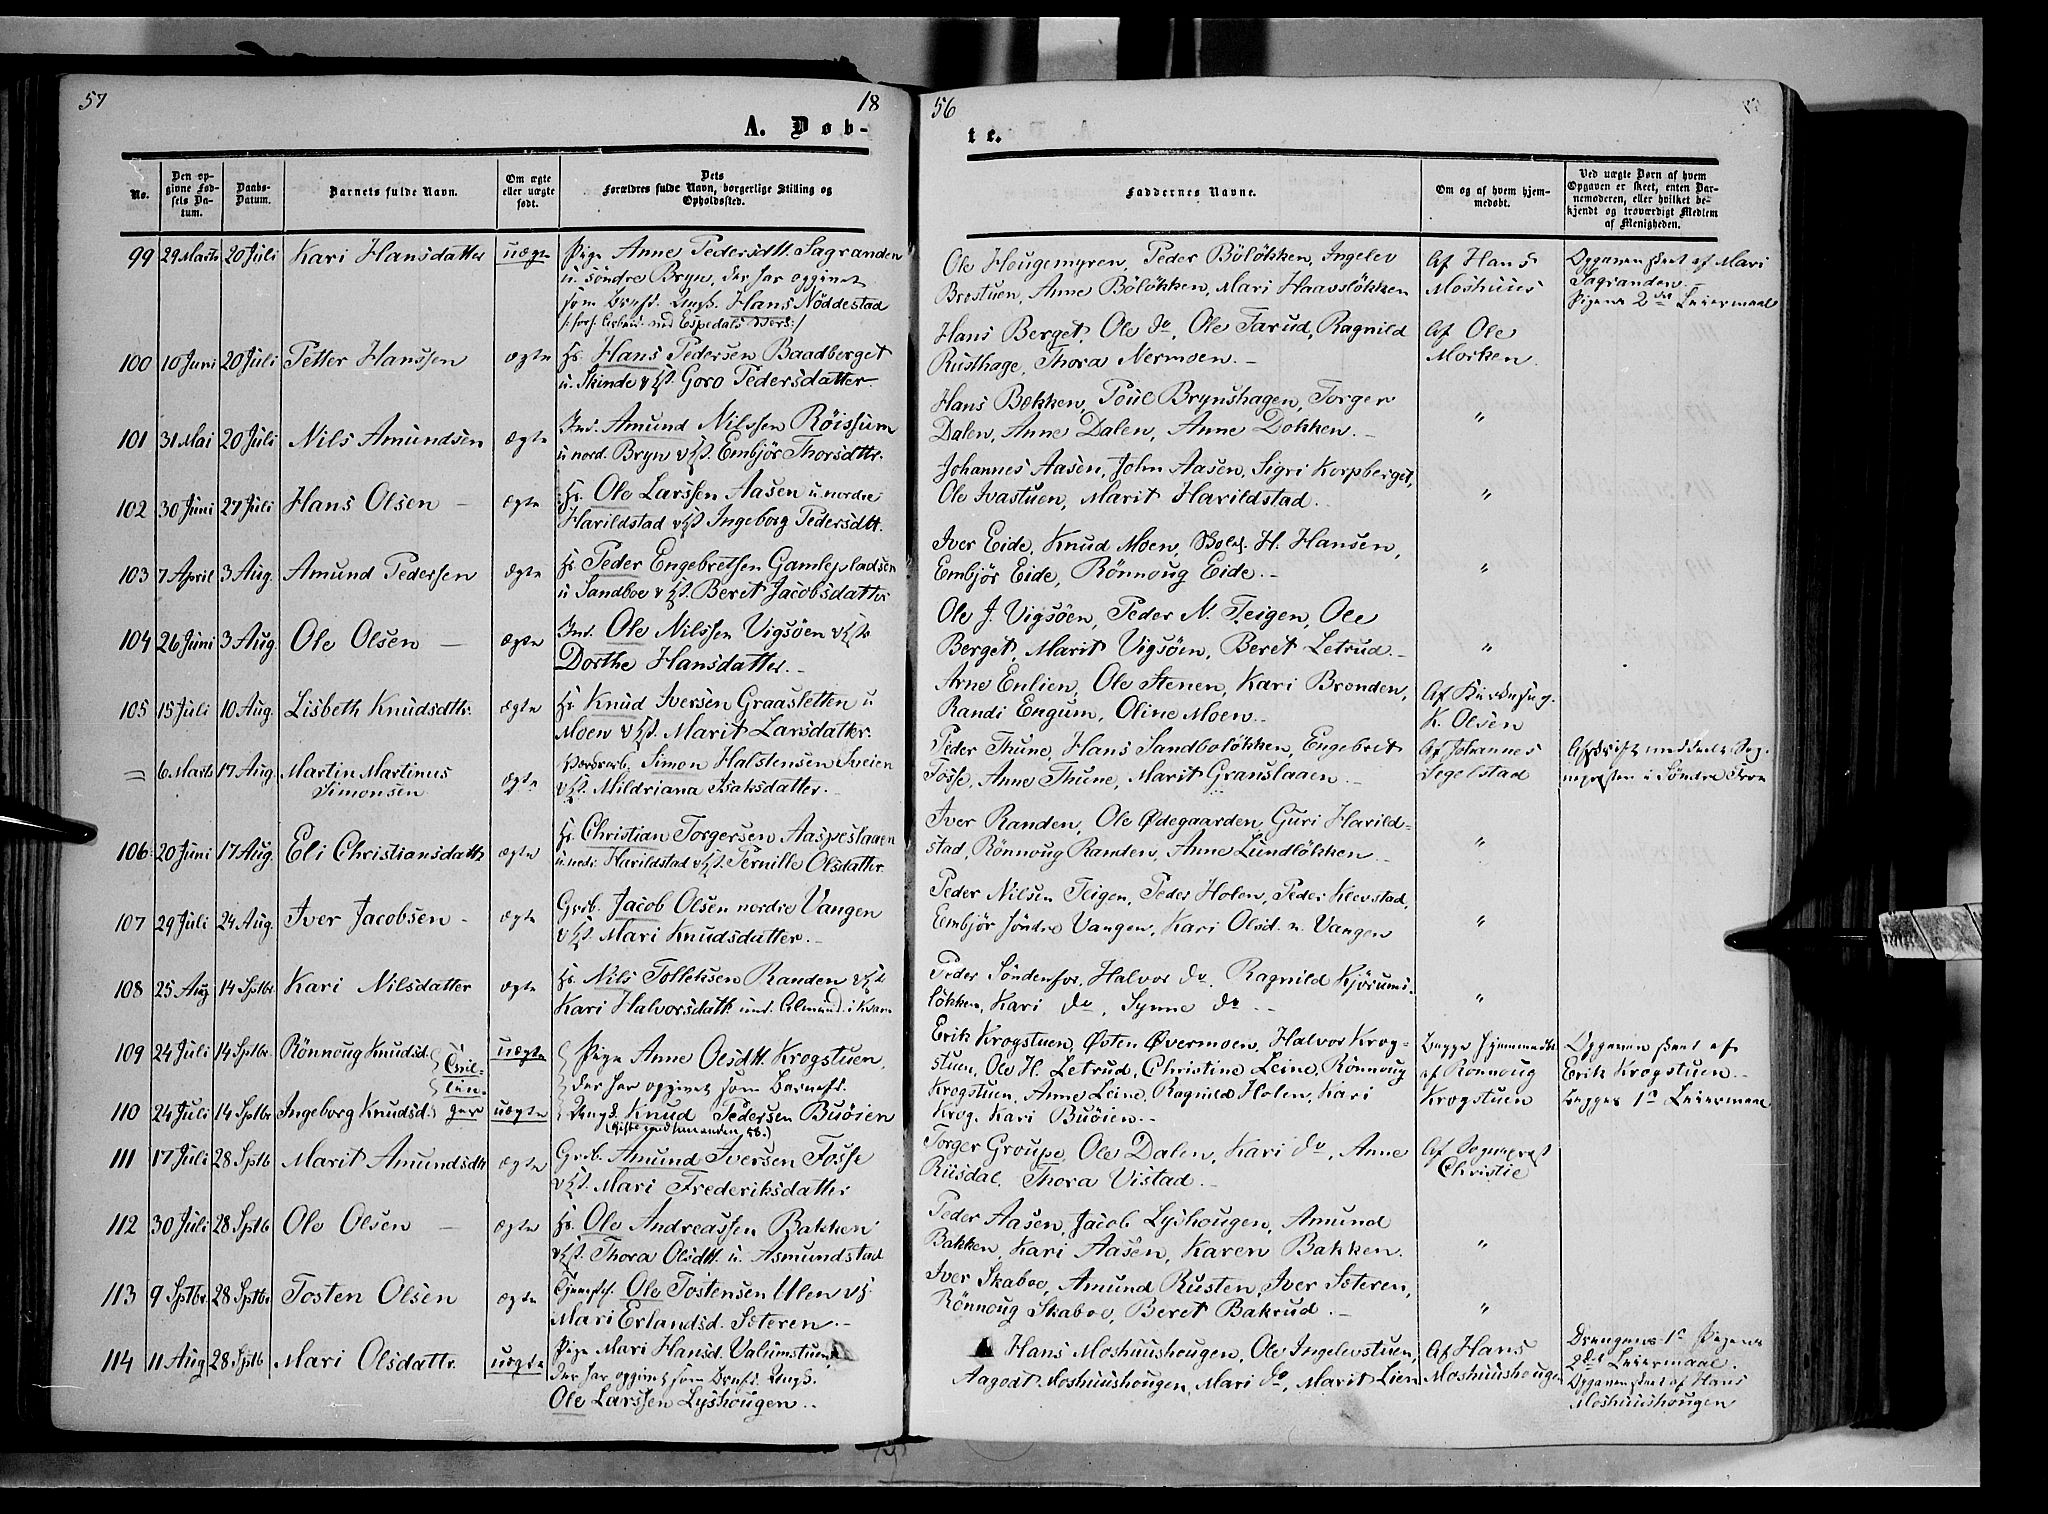 57
18
A. Døb-
No.
Den op-
givne Fød-
sels Da-
tum.
Daabs-
Datum.
Barnets fulde Navn.
Om ægte
eller uægte
født.
Dets
Forældres fulde Navn, borgerlige Stilling og
Opholdssted.
99 29 Marts 20 Juli Kari Hansdatter uægte Pige Anne Pedersdtt. Sagranden
u. söndre Bryn, der har opgivet
som Brnefr. Ungk. Hans Nöddestad
100 10 Juni 20 Juli Petter Hanssen ægte Hs. Hans Pedersen Baadberget
u. Skinde v H. Goro Pedersdatter.
101 31 Mai 20 Juli Nils Amundsen ægte Ind. Amund Nilssen Röissum
u nord. Bryn v H. Embjör Thorsdttr.
102 30 Juni 27 Juli Hans Olsen — ægte Hs. Ole Larssen Aasen u. nordre
Harildstad v H. Ingeborg Pedersdtt.
103 7 April 3 Aug. Amund Pedersen ægte Hs Peder Engebretsen Gamlepladsen
u Sandboe v H. Beret Jacobsdatter
104 26 Juni 3 Aug. Ole Olsen — ægte Ind. Ole Nilssen Vigsöen v H
Dorthe Hansdatter. —
105 15 Juli 10 Aug. Lisbeth Knudsdttr. ægte Hs. Knud Iversen Graasletten u
Moen v H. Marit Larsdatter.
= 6 Marts 17 Aug. Martin Martinus
Simonsen. ægte Simon Halstensen Sveien
v H. Mildriana Isaksdatter. —
106 20 Juni 17 Aug. Eli Christiansdattr ægte Hs. Christian Torgersen Aaspeslaaen
u. nedr. Harildstad v H. Pernille Olsdatter.
107 29 Juli 24 Aug. Iver Jacobsen — ægte Grdb. Jacob Olsen nordre Vangen
v H. Mari Knudsdatter. —
108 25 Aug 14 Sptbr. Kari Nilsdatter ægte Hs. Nils Tolleksen Randen v H
Kari Halvorsdtt. und. Aömund. i Kvam
109 24 Juli 14 Sptbr. Rönnoug Knudsd. Tvil- uægte Pige Anne Olsdtt. Krogstuen,
lin- der har opgivet som Barnefr.
110 24 Juli 14 Sptbr Ingeborg Knudsd. ger uægte Ungk. Knud Pedersen Buöien
111 17 Juli 28 Sptb Marit Amundsdtt ægte Grdb. Amund Iversen Fosse
v H. Mari Frederiksdatter
112 30 Juli 28 Sptb Ole Olsen — ægte Hs. Ole Andreassen Bakken
v H. Thora Olsdtt. u. Asmundstad
113 9 Sptbr. 28 Sptbr Tosten Olsen ægte Ole Tostensen Ulen v H.
Mari Erlandsd. Sæteren. —
114 11 Aug 28 Sptb Mari Olsdattr. uægte Pige Mari Hansd. Valumstuen
Der har opgivet som Brnefr. Ungk.
Ole Larssen Lyshougen. —
56
te.
Faddernes Navne.
Om og af hvem hjem-
medøbt.
Ved uægte Børn af hvem
Opgaven er skeet, enten Bar-
nemoderen, eller hvilket be-
kjendt og troværdigt Medlem
af Menigheden.
Ole Hougemyren, Peder Bölökken, Ingelev Af Hans Opgaven skeet af Mari
Brostuen, Anne Bölökken, Mari Haavslökken Moshuus Sagranden.
Pigens 2det Leiermaal
Hans Berget, Ole do, Ole Tarud, Ragnild Af Ole
Rusthage, Thora Nermoen. — Morken.
Hans Bækken, Poul Brynshagen, Torger
Dalen, Anne Dalen, Anne Dokken. — "
Johannes Aasen, John Aasen, Sigri Korpberget,
Ole Ivastuen, Marit Harildstad. "
Iver Eide, Knud Moen, H. Hansen,
Embjör Eide, Rönnoug Eide. — "
Ole J. Vigsöen, Peder N. Teigen, Ole
Berget, Marit Vigsöen, Beret Letrud. — "
Arne Enlien, Ole Stenen, Kari Brænden, Af Kirkesng.
Randi Engum, Oline Moen. — K. Olsen
Peder Thune, Hans Sandbolökken, Engebret Af Johannes Afskrift meddeelt Sog-
Fosse, Anne Thune, Marit Granslaaen. — Segelstad nepræsten i Söndre Fron
Iver Randen, Ole Ødegaarden, Guri Harild-
stad, Rönnoug Randen, Anne Lundlökken. — "
Peder Nilsen Teigen, Peder Holen, Peder Klevstad,
Embjör söndre Vangen, Kari Olsd. n. Vangen "
Peder Söndenfor, Halvor do, Ragnild Kjörums-
lökken, Kari do, Synne do. — "
Erik Krogstuen, Østen Övermoen, Halvor Krog- Begge hjemmedt. Opgaven skeet af
stuen, Ole H. Letrud, Christine Leine, Rönnoug af Rönnoug Erik Krogstuen. —
Krogstuen, Anne Leine, Ragnild Holen, Kari Krogstuen Begges 1ste Leiermaal
Krog, Kari Buöien. —
Torger Groupe, Ole Dalen, Kari do, Anne Af Sognepræst
Riisdal, Thora Vistad. — Christie
Peder Aasen, Jacob Lyshougen, Amund
Bakken, Kari Aasen, Karen Bakken. "
Iver Skaboe, Amund Rusten, Iver Sæteren,
Rönnoug Skaboe, Beret Bakrud. — "
Hans Moshuushougen, Ole Ingelevstuen, Af Hans Drengens 1ste Pigens
Aagodt Moshuushougen, Mari do, Marit Lien Moshuushougen 2det Leiermaal.
Opgaven skeet af Hans
Moshuushougen